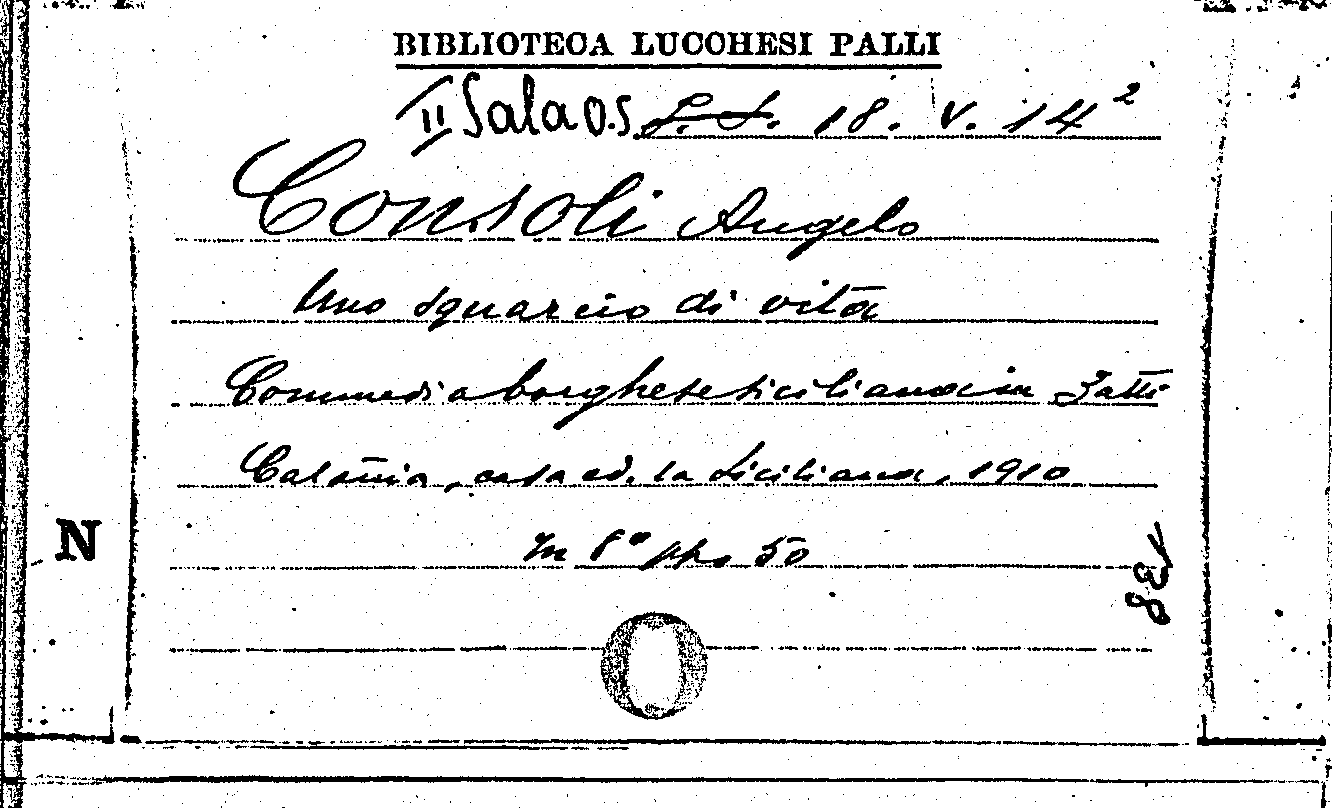 BIBLIOTECA LUCCHESI PALLI
II Sala O.S. S.S. 18. V. 14²
Consoli Angelo
Uno squarcio di vita
Commedia borghese siciliana in 3 atti
Catania, casa ed. la Siciliana, 1910
In 8° pp. 50
N